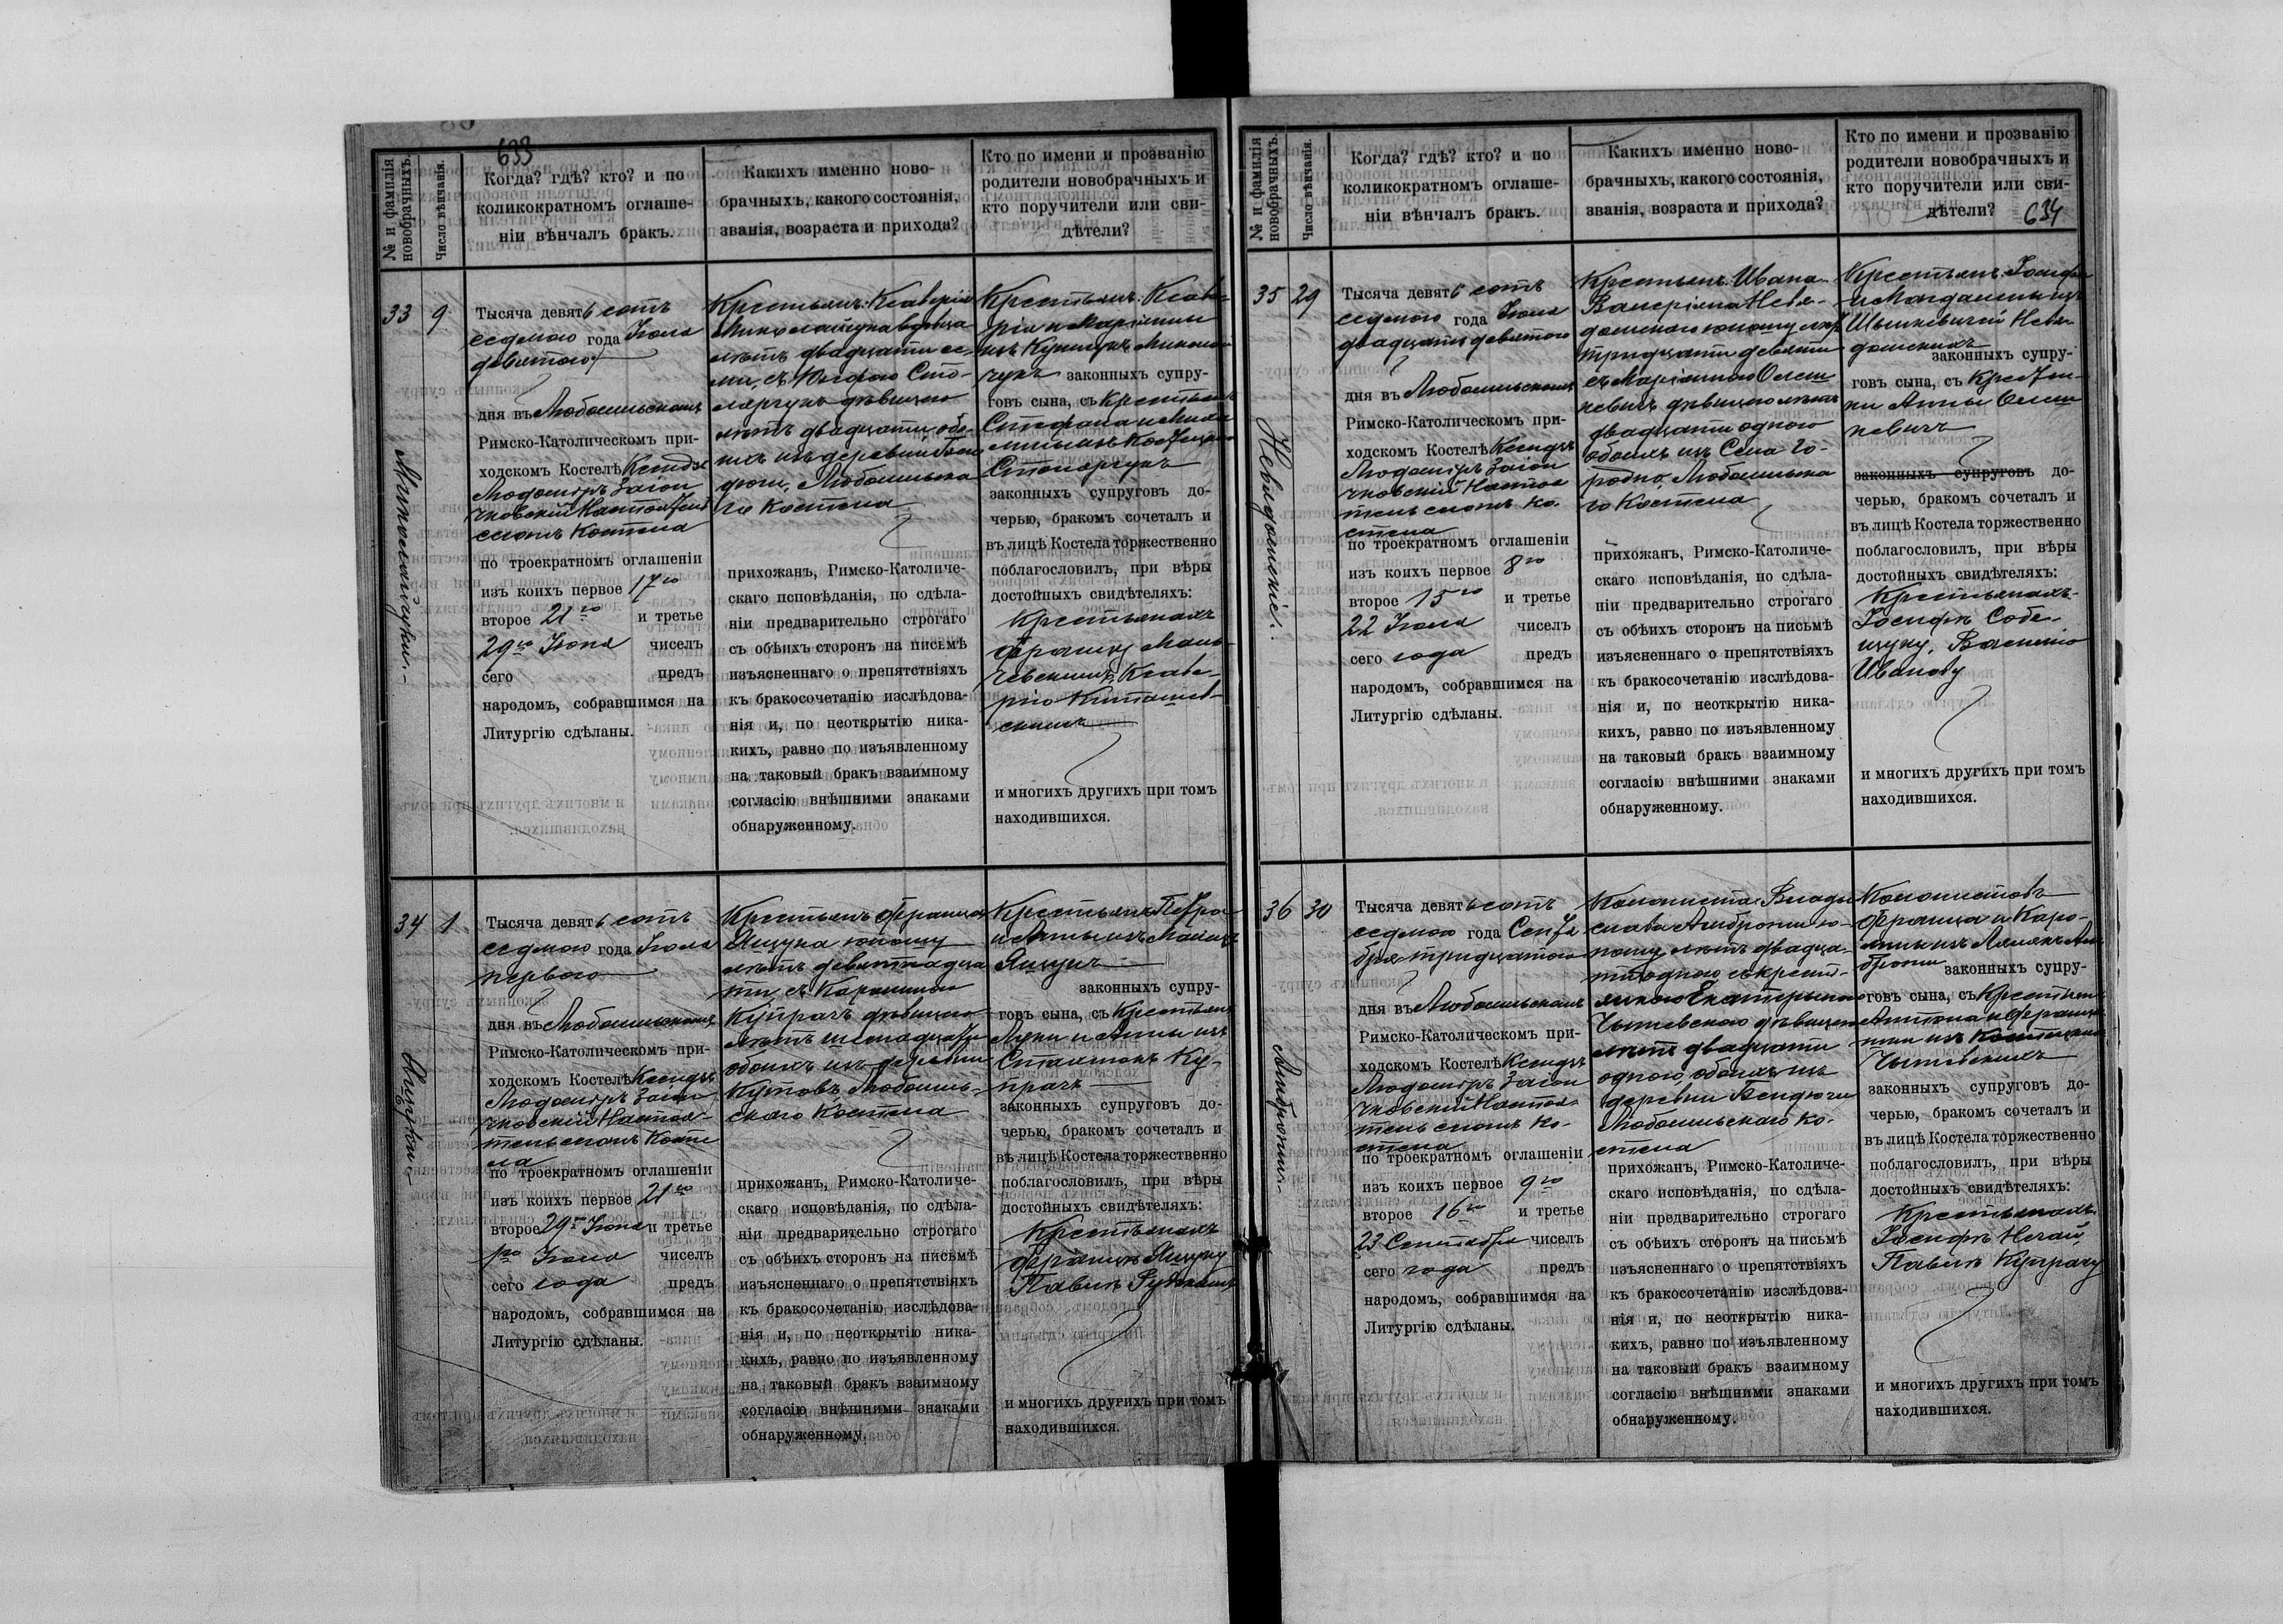 633
№ и фамилія новобрачныхъ.
Число вѣнчанія.
Когда? гдѣ? кто? и по
коликократномъ оглаше-
ніи вѣнчалъ бракъ.
Какихъ именно ново-
брачныхъ, какого состоянія,
званія, возраста и прихода?
Кто по имени и прозванію
родители новобрачныхъ и
кто поручители или сви-
дѣтели?
33
9
Тысяча девятьсотъ
седмого года Іюля
девятого
дня въ Любомльскомъ
Римско-Католическомъ при-
ходскомъ Костелѣ Ксендзъ
Людомiръ
Настоятель
Костела
по троекратномъ оглашеніи
изъ коихъ первое 17го
второе 21го и третье
29го Іюня чиселъ
сего предъ
народомъ, собравшимся на
Литургію сдѣланы.
Крестьян: Ксаверія
Миколайчука вдовца
лѣтъ двадцати се-
ми, съ Сто-
лярчукъ дѣвицею
лѣтъ двадцати обо-
ихъ изъ деревни
Любомльска
го Костела
прихожанъ, Римско-Католиче-
скаго исповѣданія, по сдѣла-
ніи предварительно строгаго
съ обѣихъ сторонъ на письмѣ
изъясненнаго о препятствіяхъ
къ бракосочетанію изслѣдова-
нія и, по неоткрытію ника-
кихъ, равно по изъявленному
на таковый бракъ взаимному
согласію внѣшними знаками
обнаруженному.
Крестьян: Ксаве-
рія и Маріанны
изъ
законныхъ супру-
говъ сына, съ Крестьян
Стефана и
Столярчукъ
законныхъ супруговъ до-
черью, бракомъ сочеталъ и
въ лицѣ Костела торжественно
поблагословилъ, при вѣры
достойныхъ свидѣтеляхъ:
Крестьянахъ
Ксаве-
рію
и многихъ другихъ при томъ
находившихся.
34
1
Тысяча девятьсотъ
седмого года Іюля
первого
дня въ Любомльскомъ
Римско-Католическомъ при-
ходскомъ Костелѣ Ксендзъ
Людомiръ
Настоя-
тель Косте
ла
по троекратномъ оглашеніи
изъ коихъ первое 21го
второе 29го Іюня и третье
1го Іюля чиселъ
сего года предъ
народомъ, собравшимся на
Литургію сдѣланы.
Крестьянъ Франца
Ящука юношу
лѣтъ девятнадца
ти, съ Каролиною
Купрачъ дѣвицею
лѣтъ
обоихъ изъ деревни
Кутовъ, Любомль-
скаго Костела
прихожанъ, Римско-Католиче-
скаго исповѣданія, по сдѣла-
ніи предварительно строгаго
съ обѣихъ сторонъ на письмѣ
изъясненнаго о препятствіяхъ
къ бракосочетанію изслѣдова-
нія и, по неоткрытію ника-
кихъ, равно по изъявленному
на таковый бракъ взаимному
согласію внѣшними знаками
обнаруженному.
Крестьянъ Петра
и Анны изъ
законныхъ супру-
говъ сына, съ Крестьян
Луки и Анны изъ
Ку-
прачъ
законныхъ супруговъ до-
черью, бракомъ сочеталъ и
въ лицѣ Костела торжественно
поблагословилъ, при вѣры
достойныхъ свидѣтеляхъ:
Крестьянахъ
Францѣ Ящуку
Павлѣ
и многихъ другихъ при томъ
находившихся.
634
№ и фамилія новобрачныхъ.
Число вѣнчанія.
Когда? гдѣ? кто? и по
коликократномъ оглаше-
ніи вѣнчалъ бракъ.
Какихъ именно ново-
брачныхъ, какого состоянія,
званія, возраста и прихода?
Кто по имени и прозванію
родители новобрачныхъ и
кто поручители или сви-
дѣтели?
35
29
Тысяча девятьсотъ
седмого года Іюля
двадцать девятого
дня въ Любомльскомъ
Римско-Католическомъ при-
ходскомъ Костелѣ Ксендзъ
Людомiръ
Настоя
тель Ко-
стела
по троекратномъ оглашеніи
изъ коихъ первое 8го
второе 15го и третье
22 Іюля чиселъ
сего года предъ
народомъ, собравшимся на
Литургію сдѣланы.
Крестьян: Ивана
Валеріяна Невя-
домского юношу лѣтъ
тридцати девяти
съ Маріанною Олеш
кевичъ дѣвицею лѣтъ
двадцати одного
обоихъ изъ Села Го-
родно, Любомльска
го Костела
прихожанъ, Римско-Католиче-
скаго исповѣданія, по сдѣла-
ніи предварительно строгаго
съ обѣихъ сторонъ на письмѣ
изъясненнаго о препятствіяхъ
къ бракосочетанію изслѣдова-
нія и, по неоткрытію ника-
кихъ, равно по изъявленному
на таковый бракъ взаимному
согласію внѣшними знаками
обнаруженному.
Крестьян: Іосифа
и Магдалены изъ
Невя-
домскихъ
законныхъ супру-
говъ сына, съ Крестьян-
ки Анны Олеш
кевичъ
законныхъ супруговъ до-
черью, бракомъ сочеталъ и
въ лицѣ Костела торжественно
поблагословилъ, при вѣры
достойныхъ свидѣтеляхъ:
Крестьянахъ
Іосифѣ Собе-
щуку, Василію
Иванову
и многихъ другихъ при томъ
находившихся.
36
30
Тысяча девятьсотъ
седмого года Сентя
бря тридцатого
дня въ Любомльскомъ
Римско-Католическомъ при-
ходскомъ Костелѣ Ксендзъ
Людомiръ
Настоя-
тель Ко-
стела
по троекратномъ оглашеніи
изъ коихъ первое 9го
второе 16го и третье
23 Сентября чиселъ
сего года предъ
народомъ, собравшимся на
Литургію сдѣланы.
Колониста Влади
слава Амброзіи ю-
ношу лѣтъ двадца-
ти одного съ кресть-
янкою Екатериною
дѣвицею
лѣтъ двадцати
одного, обоихъ изъ
деревни Бендюги
Любомльскаго Ко-
стела
прихожанъ, Римско-Католиче-
скаго исповѣданія, по сдѣла-
ніи предварительно строгаго
съ обѣихъ сторонъ на письмѣ
изъясненнаго о препятствіяхъ
къ бракосочетанію изслѣдова-
нія и, по неоткрытію ника-
кихъ, равно по изъявленному
на таковый бракъ взаимному
согласію внѣшними знаками
обнаруженному.
Колонистовъ
Франца и Каро-
лины изъ
законныхъ супру-
говъ сына, съ Крестьян
Антона и
законныхъ супруговъ до-
черью, бракомъ сочеталъ и
въ лицѣ Костела торжественно
поблагословилъ, при вѣры
достойныхъ свидѣтеляхъ:
Крестьянахъ
Іосифѣ Нечай,
Павлѣ Купрачу
и многихъ другихъ при томъ
находившихся.